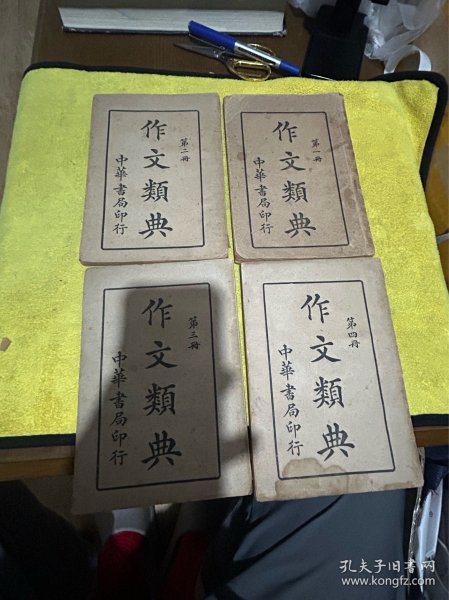 第二冊
作文類典
中華書局印行
第一冊
作文類典
中華書局印行
第三冊
作文類典
中華書局印行
第四冊
作文類典
中華書局印行
孔夫子旧书网
www.kongfz.com